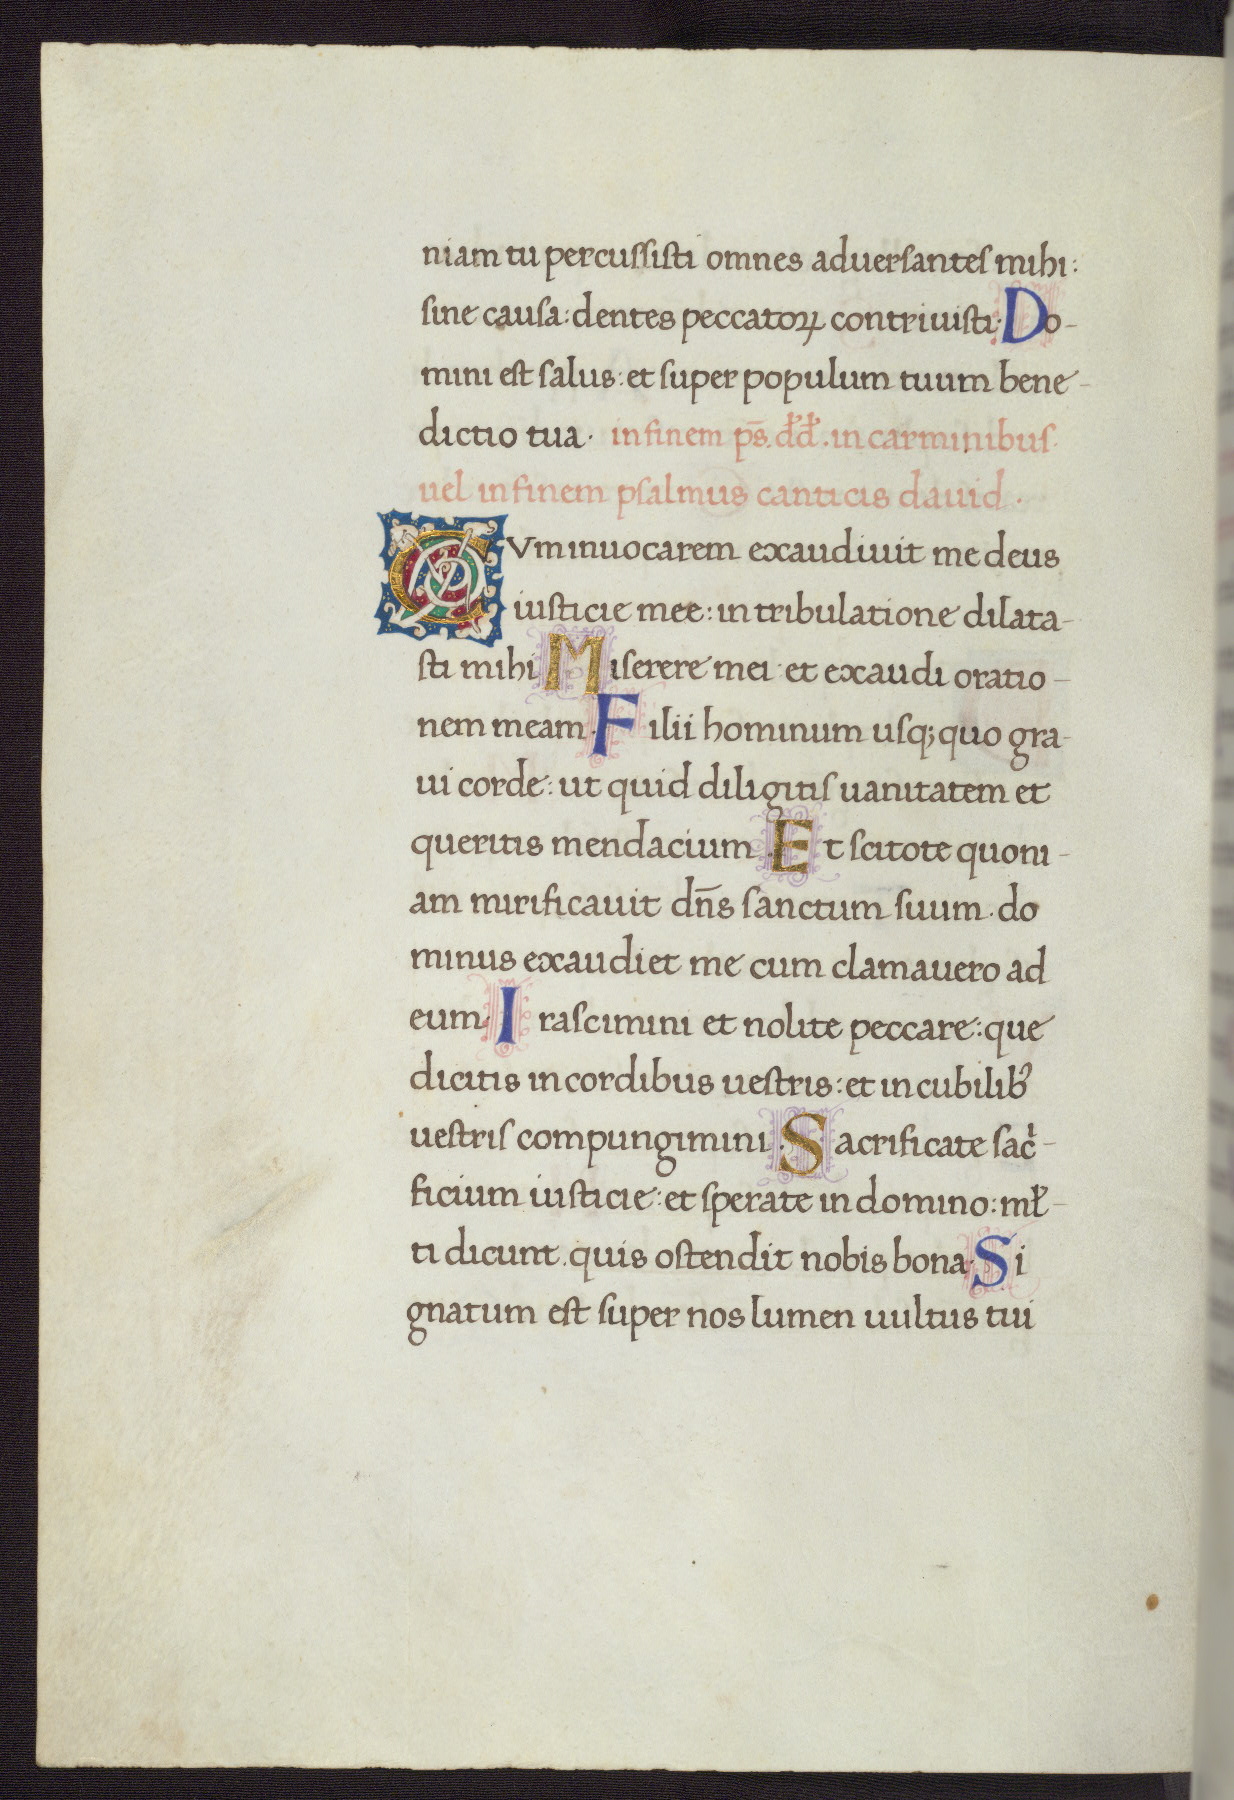 niam tu percussisti omnes aduersantes mihi:
sine causa: dentes peccatoꝝ contriuisti. Do-
mini est salus: et super populum tuum bene-
dictio tua. in finem ps̄. dd̵. in carminibus.
uel in finem psalmus canticis dauid.
CVm inuocarem exaudiuit me deus
iusticie mee: in tribulatione dilata-
sti mihi Miserere mei et exaudi oratio-
nem meam. Filii hominum usq; quo gra-
ui corde: ut quid diligitis uanitatem et
queritis mendacium. Et scitote quoni-
am mirificauit dn̄s sanctum suum. do
minus exaudiet me cum clamauero ad
eum. Irascimini et nolite peccare: que
dicitis in cordibus uestris: et in cubilibꝰ
uestris compungimini. Sacrificate sacⁱ-
ficium iusticie: et sperate in domino: ml̵-
ti dicunt. quis ostendit nobis bona. Si
gnatum est super nos lumen uultus tui